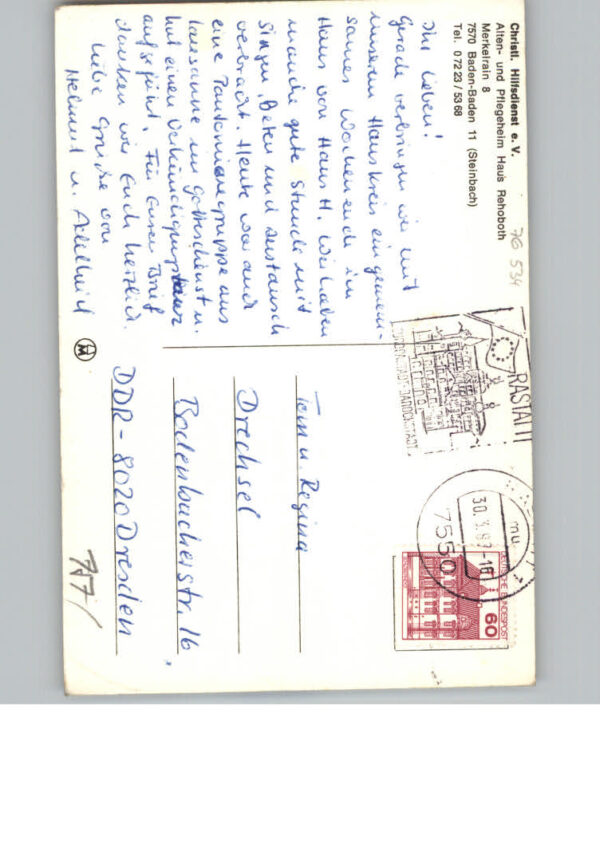 Christl. Hilfsdienst e. V.
Alten- und Pflegeheim Haus Rehoboth
Merkelrain 8
7570 Baden-Baden 11 (Steinbach)
Tel. 0 72 23 / 53 68
76 534
Ihr Lieben!
Gerade verbringen wir mit
unserem Hauskreis ein gemein-
sames Wochenende im
Haus von Haus H. Wir haben
manche gute Stunde mit
Singen, Beten und Austausch
verbracht. Heute war auch
eine Pantomimegruppe aus
Lausanne im Gottesdienst u.
hat einen Verkündigungstanz
aufgeführt. Für Euren Brief
danken wir Euch herzlich.
Liebe Grüße von
Helmut u. Adelheid
RASTATT
BAROCKSTADT
30.3.87-16
7550
DEUTSCHE BUNDESPOST
60
Tom u. Regina
Drechsel
Bodenbacherstr. 16,
DDR-8020 Dresden
7,7/